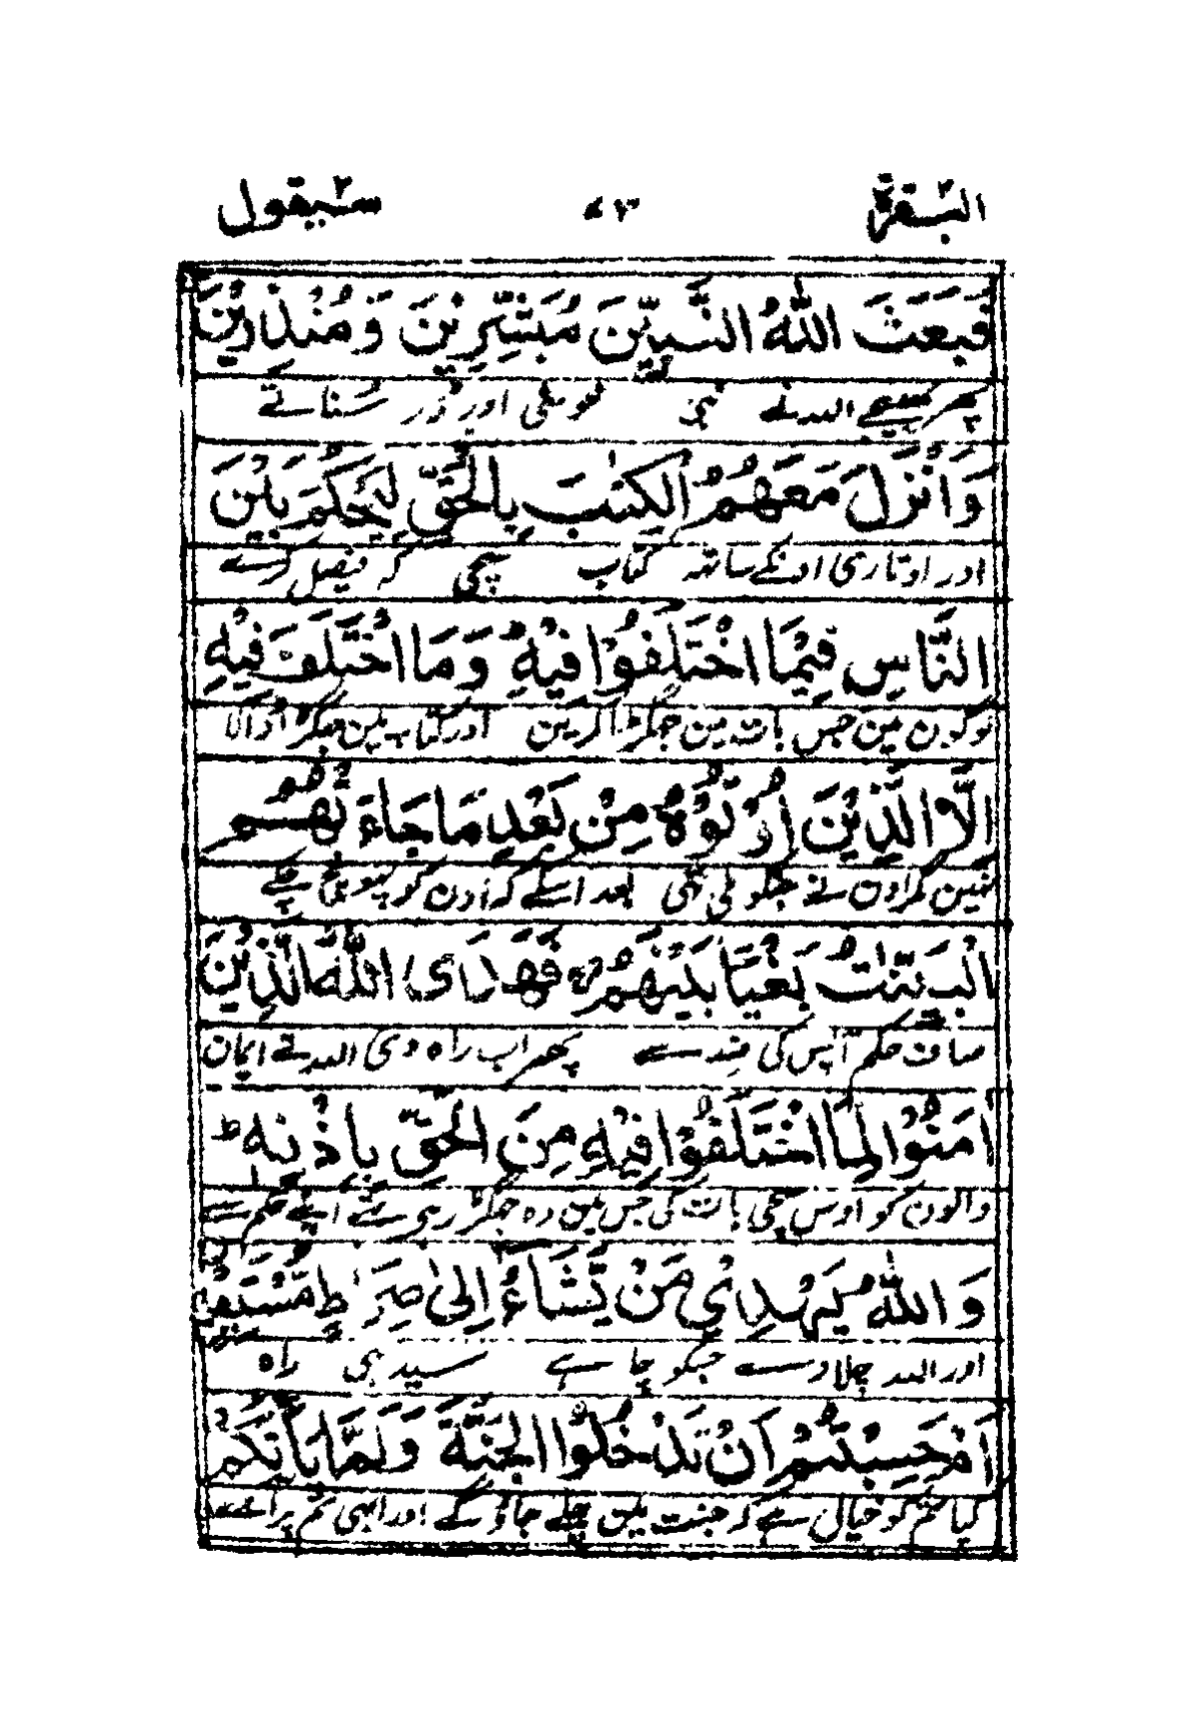 البقرة ٢ ٧٣ سيقول ٢
فَبَعَثَ اللّٰهُ النَّبِيّٖنَ مُبَشِّرِيْنَ وَمُنْذِرِيْنَ
پھر بھیجے اللہ نے نبی خوشی اور ڈر سُناتے
وَاَنْزَلَ مَعَهُمُ الْكِتٰبَ بِالْحَقِّ لِيَحْكُمَ بَيْنَ
اور اوتاری اونکے ساتھ کتاب سچی کہ فیصل کرے
النَّاسِ فِيْمَا اخْتَلَفُوْا فِيْهِ ؕ وَمَا اخْتَلَفَ فِيْهِ
لوگون مین جس بات مین جھگڑا کرین اور کتاب مین جھگڑا ڈالا
اِلَّا الَّذِيْنَ اُوْتُوْهُ مِنْۢ بَعْدِ مَا جَآءَ تْهُمُ
نہین مگر اون نے جنکو ملی تھی بعد اسکے کہ اون کو پہونچ چکے
الْبَيِّنٰتُ بَغْيًاۢ بَيْنَهُمْ ۚ فَهَدَى اللّٰهُ الَّذِيْنَ
صاف حکم آپس کی ضد سے پھر اب راہ دی اللہ نے ایمان
اٰمَنُوْا لِمَا اخْتَلَفُوْا فِيْهِ مِنَ الْحَقِّ بِاِذْنِهٖ ؕ
والون کو اوس سچی بات کی جس مین وہ جھگڑ رہے تھے اپنے حکم سے
وَاللّٰهُ يَهْدِيْ مَنْ يَّشَآءُ اِلٰى صِرَاطٍ مُّسْتَقِيْمٍ
اور اللہ چلاوے جسکو چاہے سیدہی راہ
اَمْ حَسِبْتُمْ اَنْ تَدْخُلُوا الْجَنَّةَ وَلَمَّا يَاْتِكُمْ
کیا تمکو خیال ہے کہ جنت مین چلے جاؤگے اور ابھی تم پر آئے